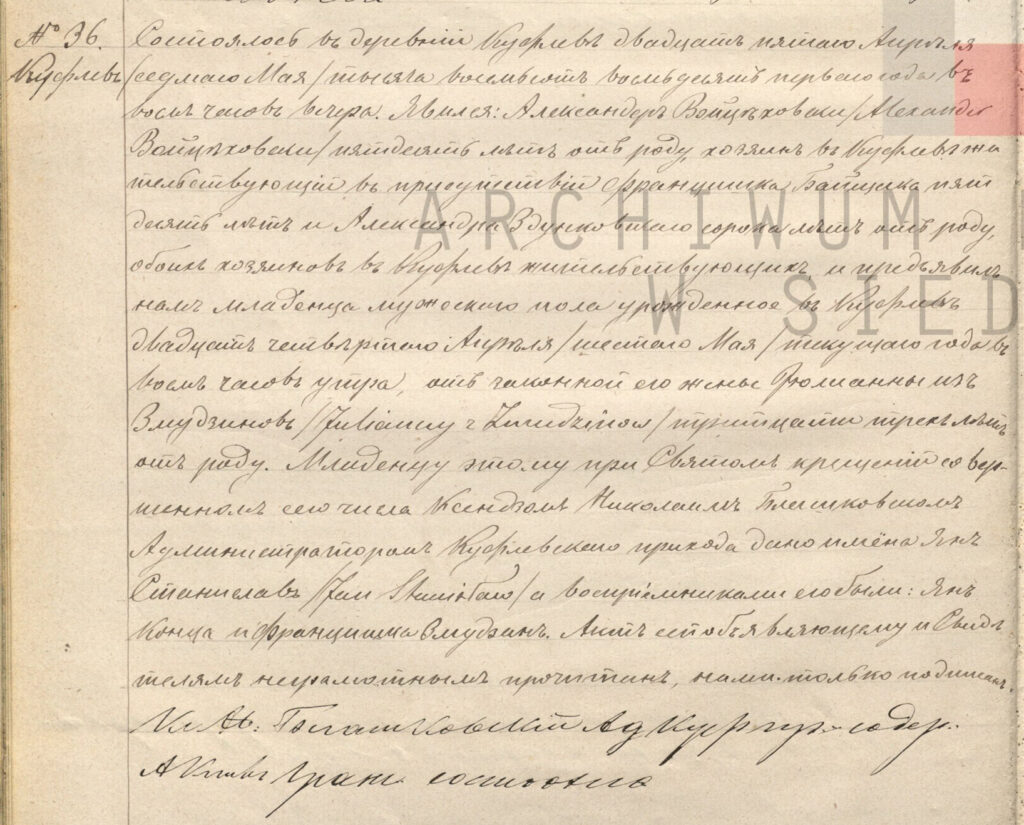 № 36. Состоялось въ деревнѣ Куфлевъ двадцать пятаго Апрѣля
Куфлевъ /седмаго Мая/ тысяча восемьсотъ восемьдесятъ перваго года въ
восемь часовъ вечера. Явился: Александеръ Войцѣховски /Alexander
Войцѣховски/ пятдесятъ лѣтъ отъ роду, хозяинъ въ Куфлевъ жи
тельствующій въ присутствіи Францишка Байщика пят
десятъ лѣтъ и Александра Здунковскаго сорока лѣтъ отъ роду,
обоихъ хозяиновъ въ Куфлевъ жительствующихъ и предъявилъ
намъ младенца мужескаго пола урожденное въ Куфлевъ
двадцать четвѣртаго Апрѣля /шестаго Мая/ текущаго года въ
восемь часовъ утра, отъ законной его жены Юлианны изъ
Змудзиновъ /Julianny z Zmudzinow/ тритцати трехъ лѣтъ
отъ роду. Младенцу этому при Святомъ крещеніи совер-
шенномъ сего числа Ксендзомъ Николаимъ
Администраторомъ Куфлевскаго прихода дано имёна Янъ
Станиславъ /Jan Stanisław/ а воспріемниками его были: Янъ
Конца и Францишка Змудзинъ. Актъ сей объявляющему и Свидѣ
телямъ неграмотнымъ прочитанъ, нами только подписанъ.
Кс. Ад Куф содер.
Актовъ Граж. состоянія
ARCHIWUM
W SIED